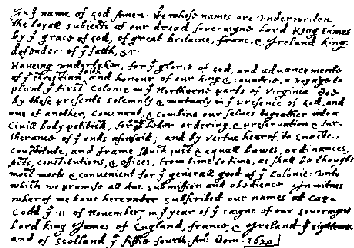 In yͤ name of God Amen. We whose names are underwriten,
the loyall subjects of our dread soveraigne Lord King James
by yͤ grace of God, of great Britaine, franc, & Ireland king,
defender of yͤ faith, &c.
Haveing undertaken, for yͤ glorie of God, and advancemente
of yͤ christian faith and honour of our king & countrie, a voyage to
plant yͤ first colonie in yͤ Northerne parts of Virginia. Doe
by these presents solemnly & mutualy in yͤ presence of God, and
one of another, covenant, & combine our selves togeather into a
civill body politick, for our better ordering, & preservation & fur-
therance of yͤ ends aforesaid; and by vertue hearof to enacte,
constitute, and frame such just & equall lawes, ordinances,
acts, constitutions, & offices, from time to time, as shall be thought
most meete & convenient for yͤ generall good of yͤ Colonie: unto
which we promise all due submission and obedience. In witnes
wherof we have hereunder subscribed our names at Cap-
Codd yͤ 11 of November, in yͤ year of yͤ raigne of our soveraigne
Lord king James of England, france, & Ireland yͤ eighteenth
and of Scotland yͤ fiftie fourth. Ano: Dom. 1620.